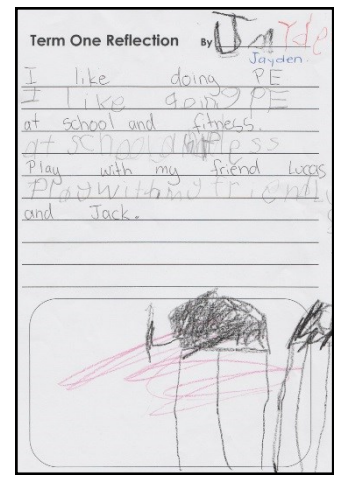 Term One Reflection By Jayde
Jayden.
I like doing PE
I like doing PE
at school and fitness.
at school
Play with my friend Lucas
Play with my friend
and Jack.